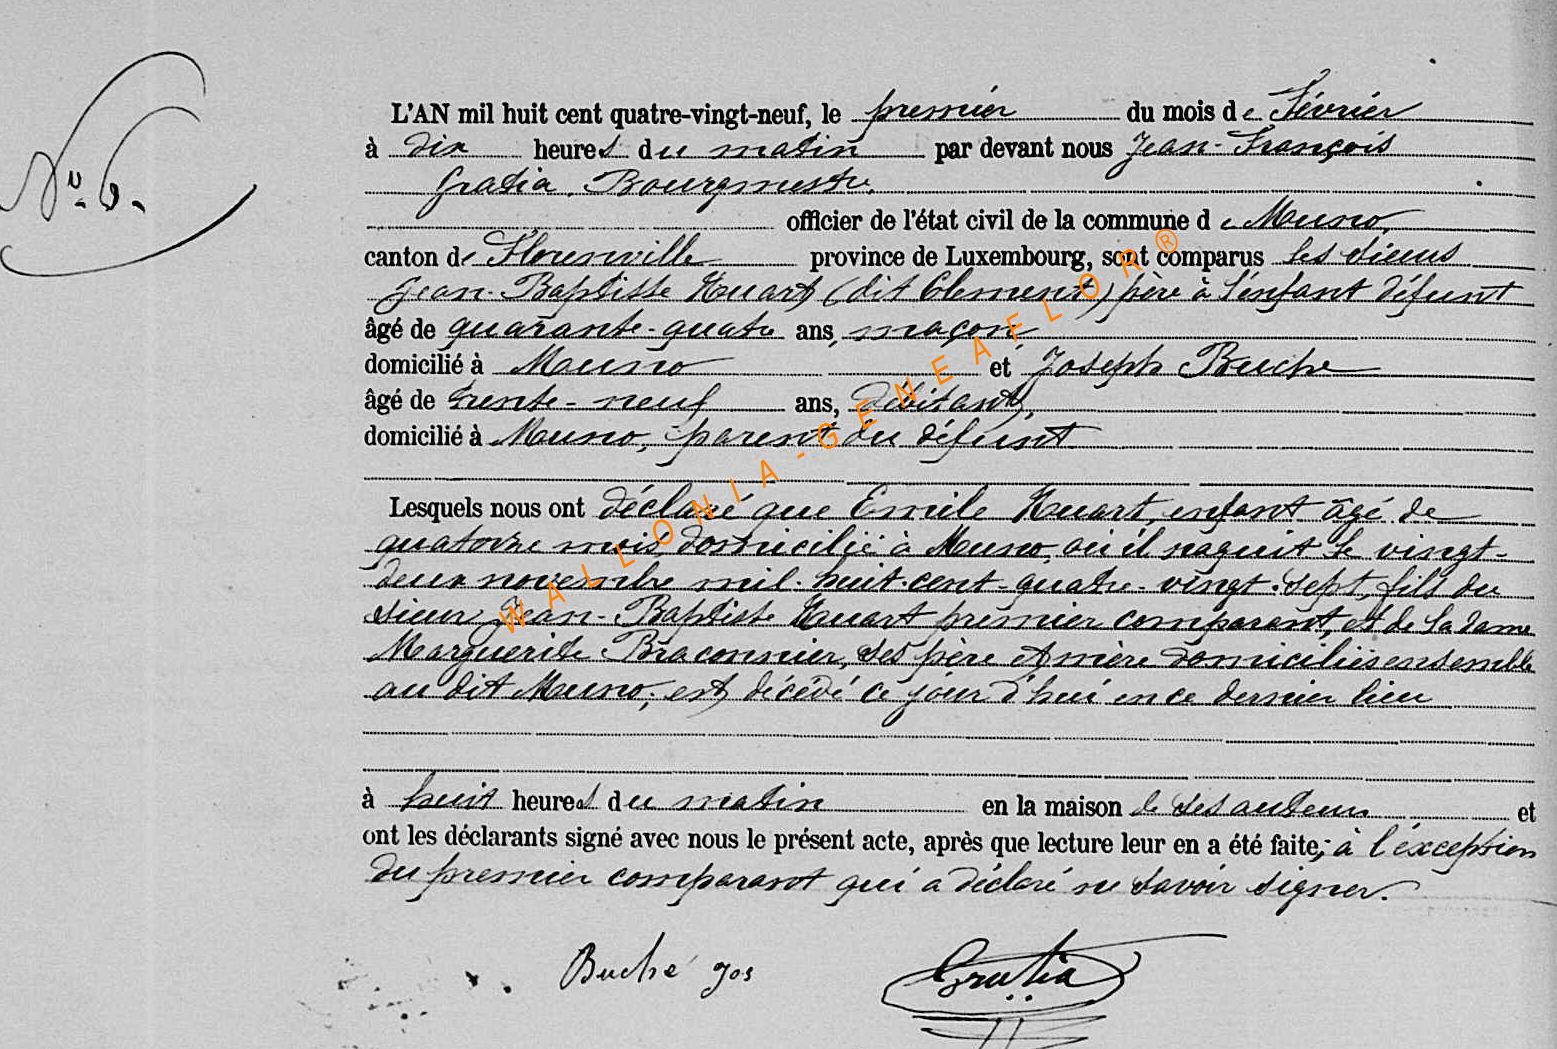 N° 6.
L'AN mil huit cent quatre-vingt-neuf, le premier du mois de Février
à dix heures du matin par devant nous Jean-François
Gratia, Bourgmestre,
officier de l'état civil de la commune de Muno,
canton de Florenville province de Luxembourg, sont comparus les sieurs
Jean-Baptiste Huart (dit Clement) père à l'enfant défunt
âgé de quarante-quatre ans, maçon,
domicilié à Muno et Joseph Buche
âgé de trente-neuf ans, débitant,
domicilié à Muno, parent du défunt
Lesquels nous ont déclaré que Emile Huart, enfant âgé de
quatorze mois, domicilié à Muno, où il naquit le vingt-
deux novembre mil-huit-cent-quatre-vingt-sept, fils du
sieur Jean-Baptiste Huart premier comparant, et de la dame
Marguerite Braconnier, ses père et mère domiciliés ensemble
au dit Muno; est décédé ce jour d'hui en ce dernier lieu
à huit heures du matin en la maison de ses auteurs et
ont les déclarants signé avec nous le présent acte, après que lecture leur en a été faite, à l'exception
du premier comparant qui a déclaré ne savoir signer.
Buché Jos
Gratia
WALLONIA-GENEAFLOR®